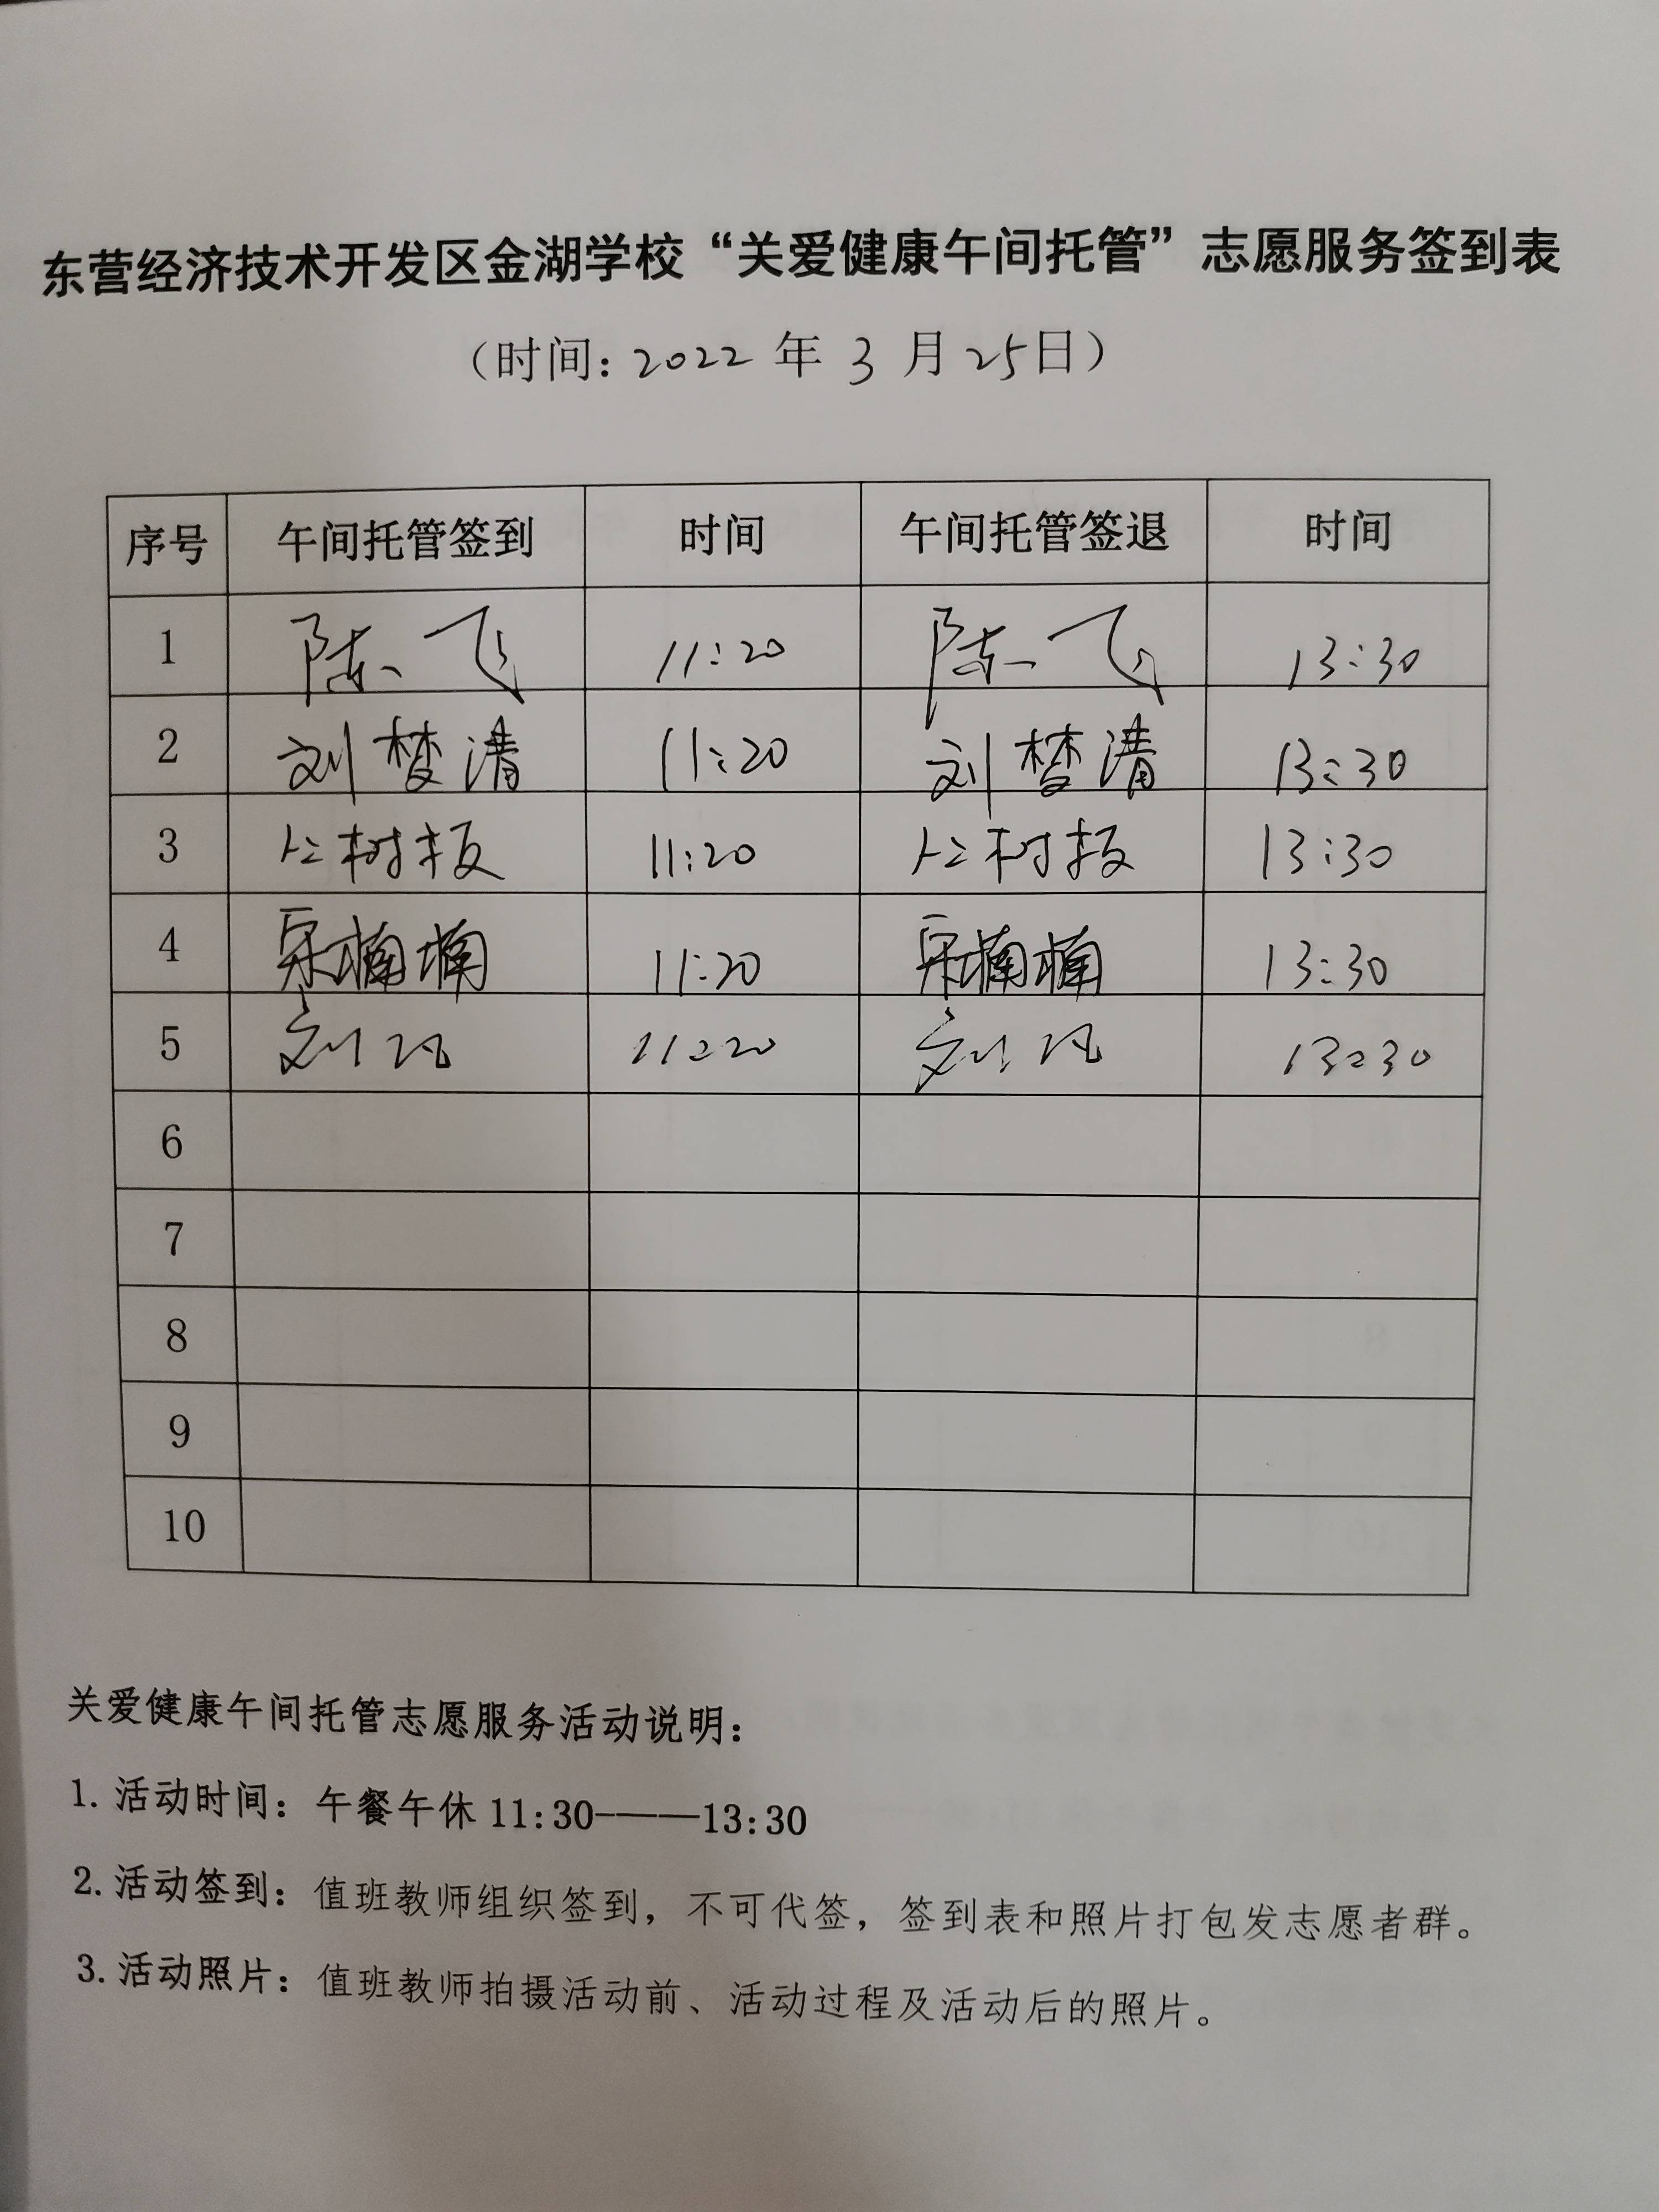 东营经济技术开发区金湖学校“关爱健康午间托管”志愿服务签到表
（时间：2022 年 3 月 25日）
序号 午间托管签到 时间 午间托管签退 时间
1 陈飞 11:20 陈飞 13:30
2 刘梦清 11:20 刘梦清 13:30
3 11:20 13:30
4 楠楠 11:20 楠楠 13:30
5 刘凡 11:20 刘凡 13:30
6
7
8
9
10
关爱健康午间托管志愿服务活动说明：
1. 活动时间：午餐午休 11:30-———13:30
2. 活动签到：值班教师组织签到，不可代签，签到表和照片打包发志愿者群。
3. 活动照片：值班教师拍摄活动前、活动过程及活动后的照片。